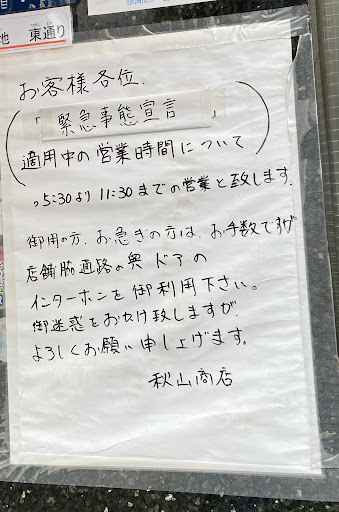 地 東通り
お客様各位.
「緊急事態宣言」
適用中の営業時間について
5:30より11:30までの営業と致します.
御用の方、お急ぎの方は、お手数ですが
店舗脇通路の奥ドアの
インターホンを御利用下さい。
御迷惑をおかけ致しますが、
よろしくお願い申し上げます。
秋山商店